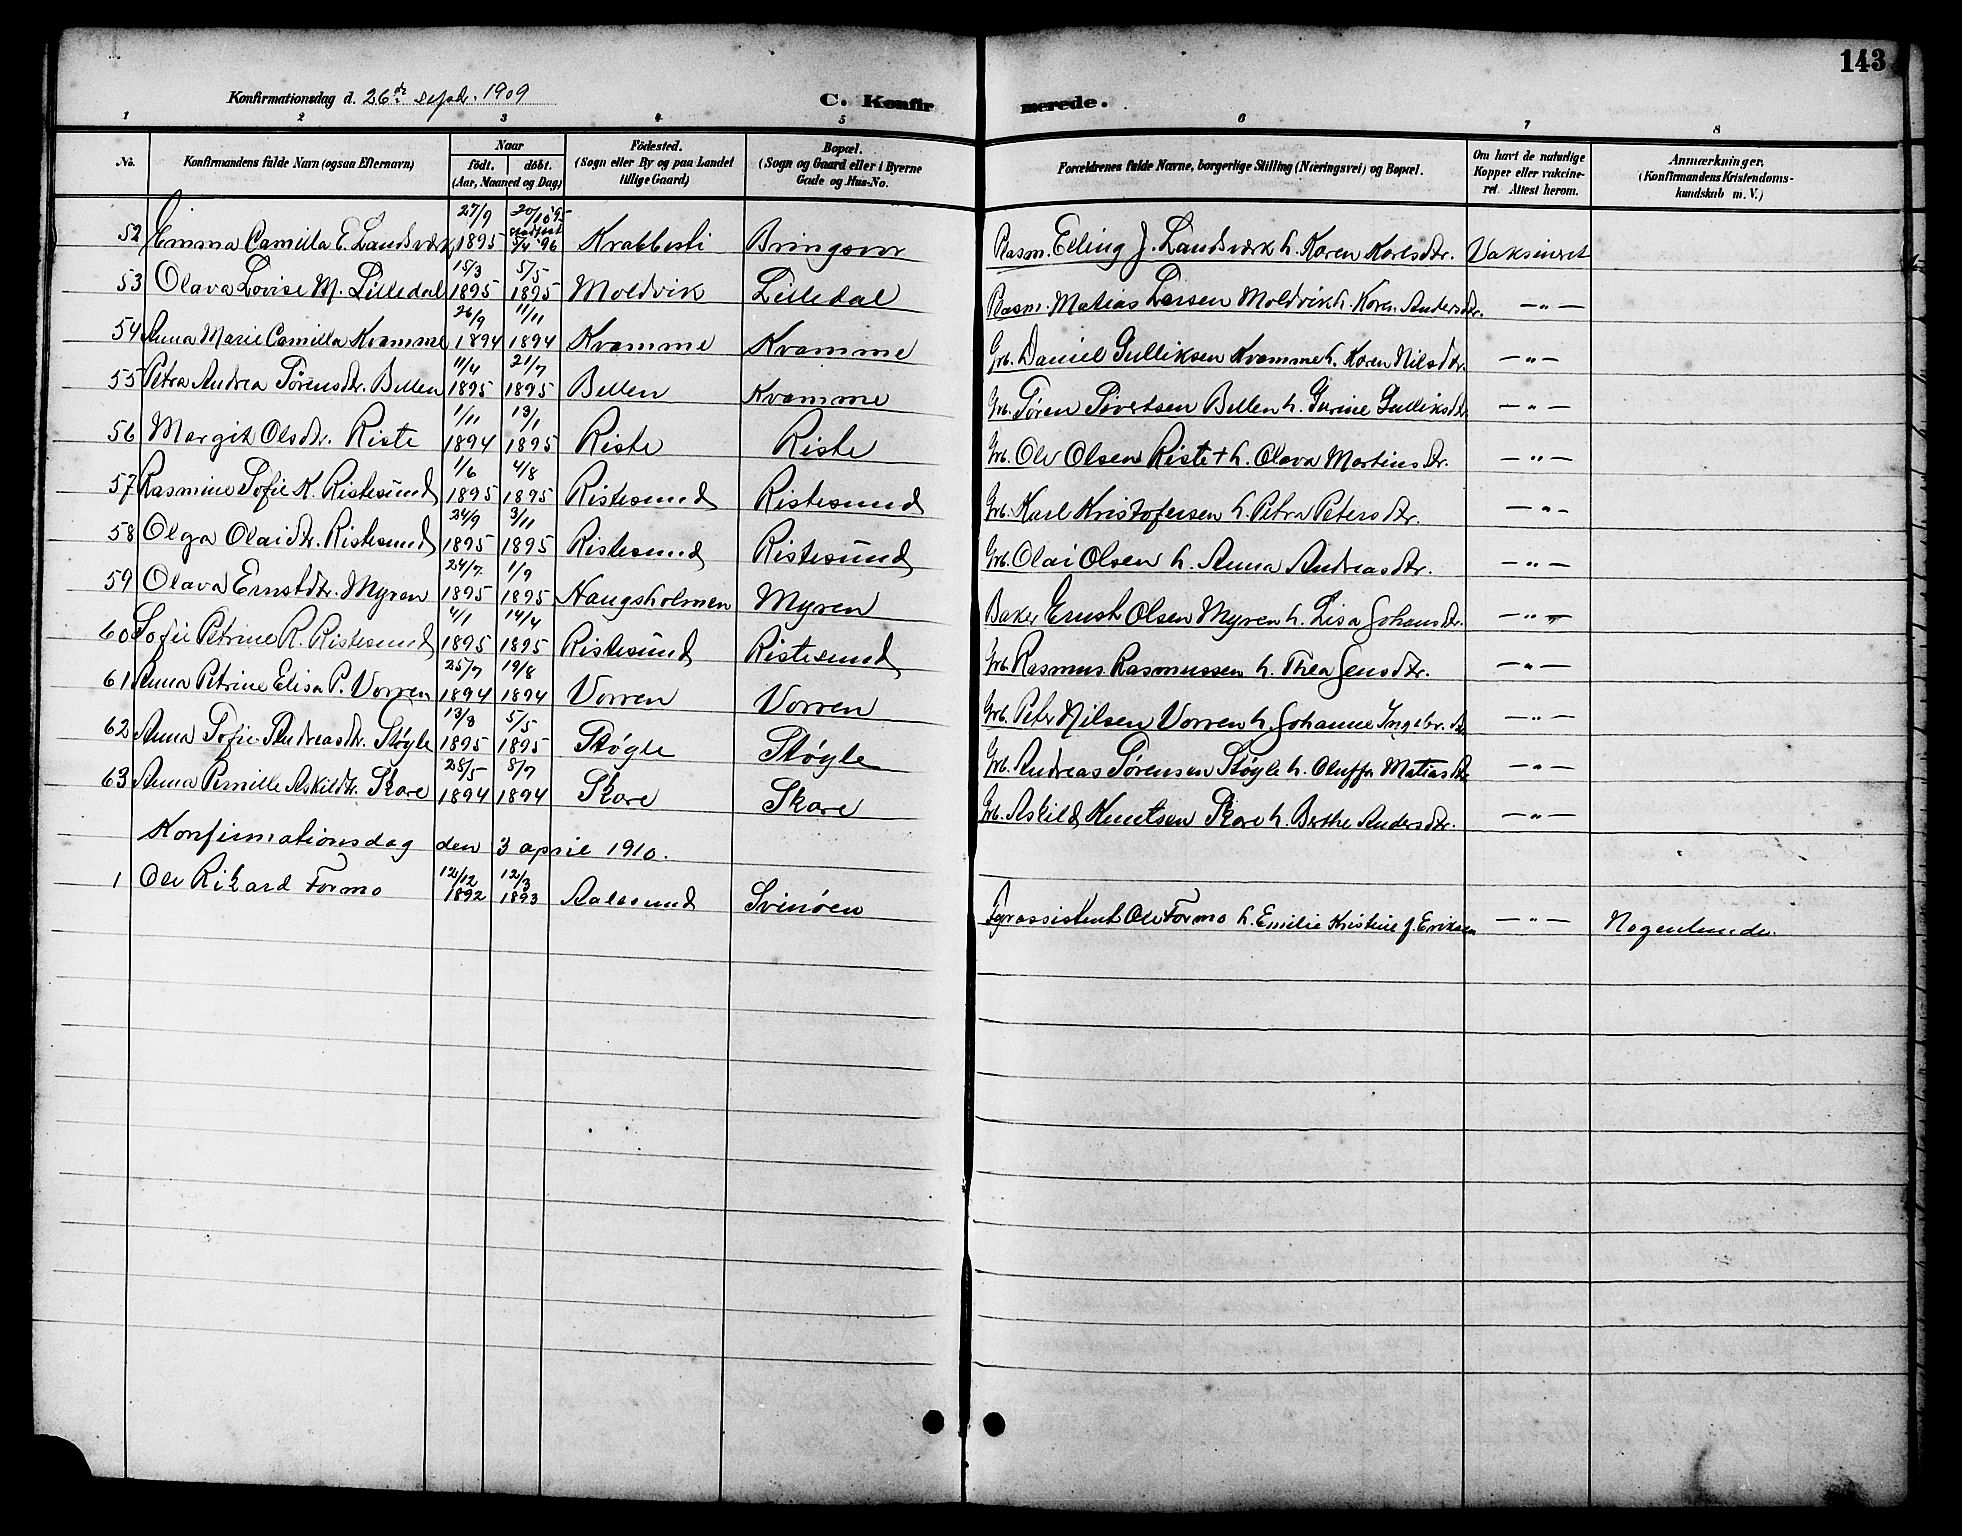 143
Konfirmationsdag d. 26de septr. 1909 C. Konfirmerede.
1 2 3 4 5 6 7 8
No. Konfirmandens fulde Navn (ogsaa Efternavn) Naar födt. döbt. (Aar, Maaned og Dag) Födested. (Sogn eller By og paa Landet tillige Gaard) Bopæl. (Sogn og Gaard eller i Byerne Gade og Hus-No. Forældrenes fulde Navne, borgerlige Stilling (Næringsvei) og Bopæl. Om havt de naturlige Kopper eller vakcineret. Attest herom. Anmærkninger. (Konfirmandens Kristendomskundskab m. V.)
52 Emma Camilla E. Landsværk 27/9 1895 20/10 95 stadfest 5/4 96 Krabbesti Bringsvor Rasm. Elling J. Landsværk h. Karen Karlsdtr. Vaksineret
53 Olava Lovise M. Lilledal 15/3 1895 5/5 1895 Moldvik Lilledal Rasm. Matias Larsen Moldvik h. Karen Andersdtr. —"—
54 Anna Marie Camilla Kvamme 26/9 1894 11/11 1894 Kvamme Kvamme Grb. Daniel Gulliksen Kvamme h. Karen Nilsdtr. —"—
55 Petra Andrea Sørensdtr. Bellen 11/4 1895 21/7 1895 Bellen Kvamme Grb. Søren Sivertsen Bellen h. Gurine Gulliksdtr. —"—
56 Margit Olsdtr. Riste 1/11 1894 13/1 1895 Riste Riste Grb. Ole Olsen Riste + h. Olava Martinsdtr. —"—
57 Rasmine Sofie K. Ristesund 1/6 1895 4/8 1895 Ristesund Ristesund Grb. Karl Kristofersen h. Petra Petersdtr. —"—
58 Olga Olaidtr. Ristesund 24/9 1895 3/11 1895 Ristesund Ristesund Grb. Olai Olsen h. Anna Andreasdtr. —"—
59 Olava Ernstdtr. Myren 24/7 1895 1/9 1895 Haugsholmen Myren Baker Ernst Olsen Myren h. Lisa Johansdtr. —"—
60 Sofie Petrine R. Ristesund 4/1 1895 14/4 1895 Ristesund Ristesund Grb. Rasmus Rasmussen h. Thea Jensdtr. —"—
61 Anna Petrine Elisa P. Vorren 25/7 1894 19/8 1894 Vorren Vorren Grb. Peter Nilsen Vorren h. Johanne Ingebr.dtr. —"—
62 Anna Sofie Andreasdtr. Støyle 13/3 1895 5/5 1895 Støyle Støyle Grb. Andreas Sørensen Støyle h. Oluffa Matiasdtr. —"—
63 Anna Pernille Askildtr. Skare 28/5 1894 8/7 1894 Skare Skare Grb. Askild Knutsen Skare h. Berthe Andersdtr. —"—
Konfirmationsdag den 3 april 1910.
1 Ole Rikard Formo 12/12 1892 12/3 1893 Aalesund Svinöen Fyrassistent Ole Formo h. Emilie Kristine f. Eriksen —"— Nogenlunde.